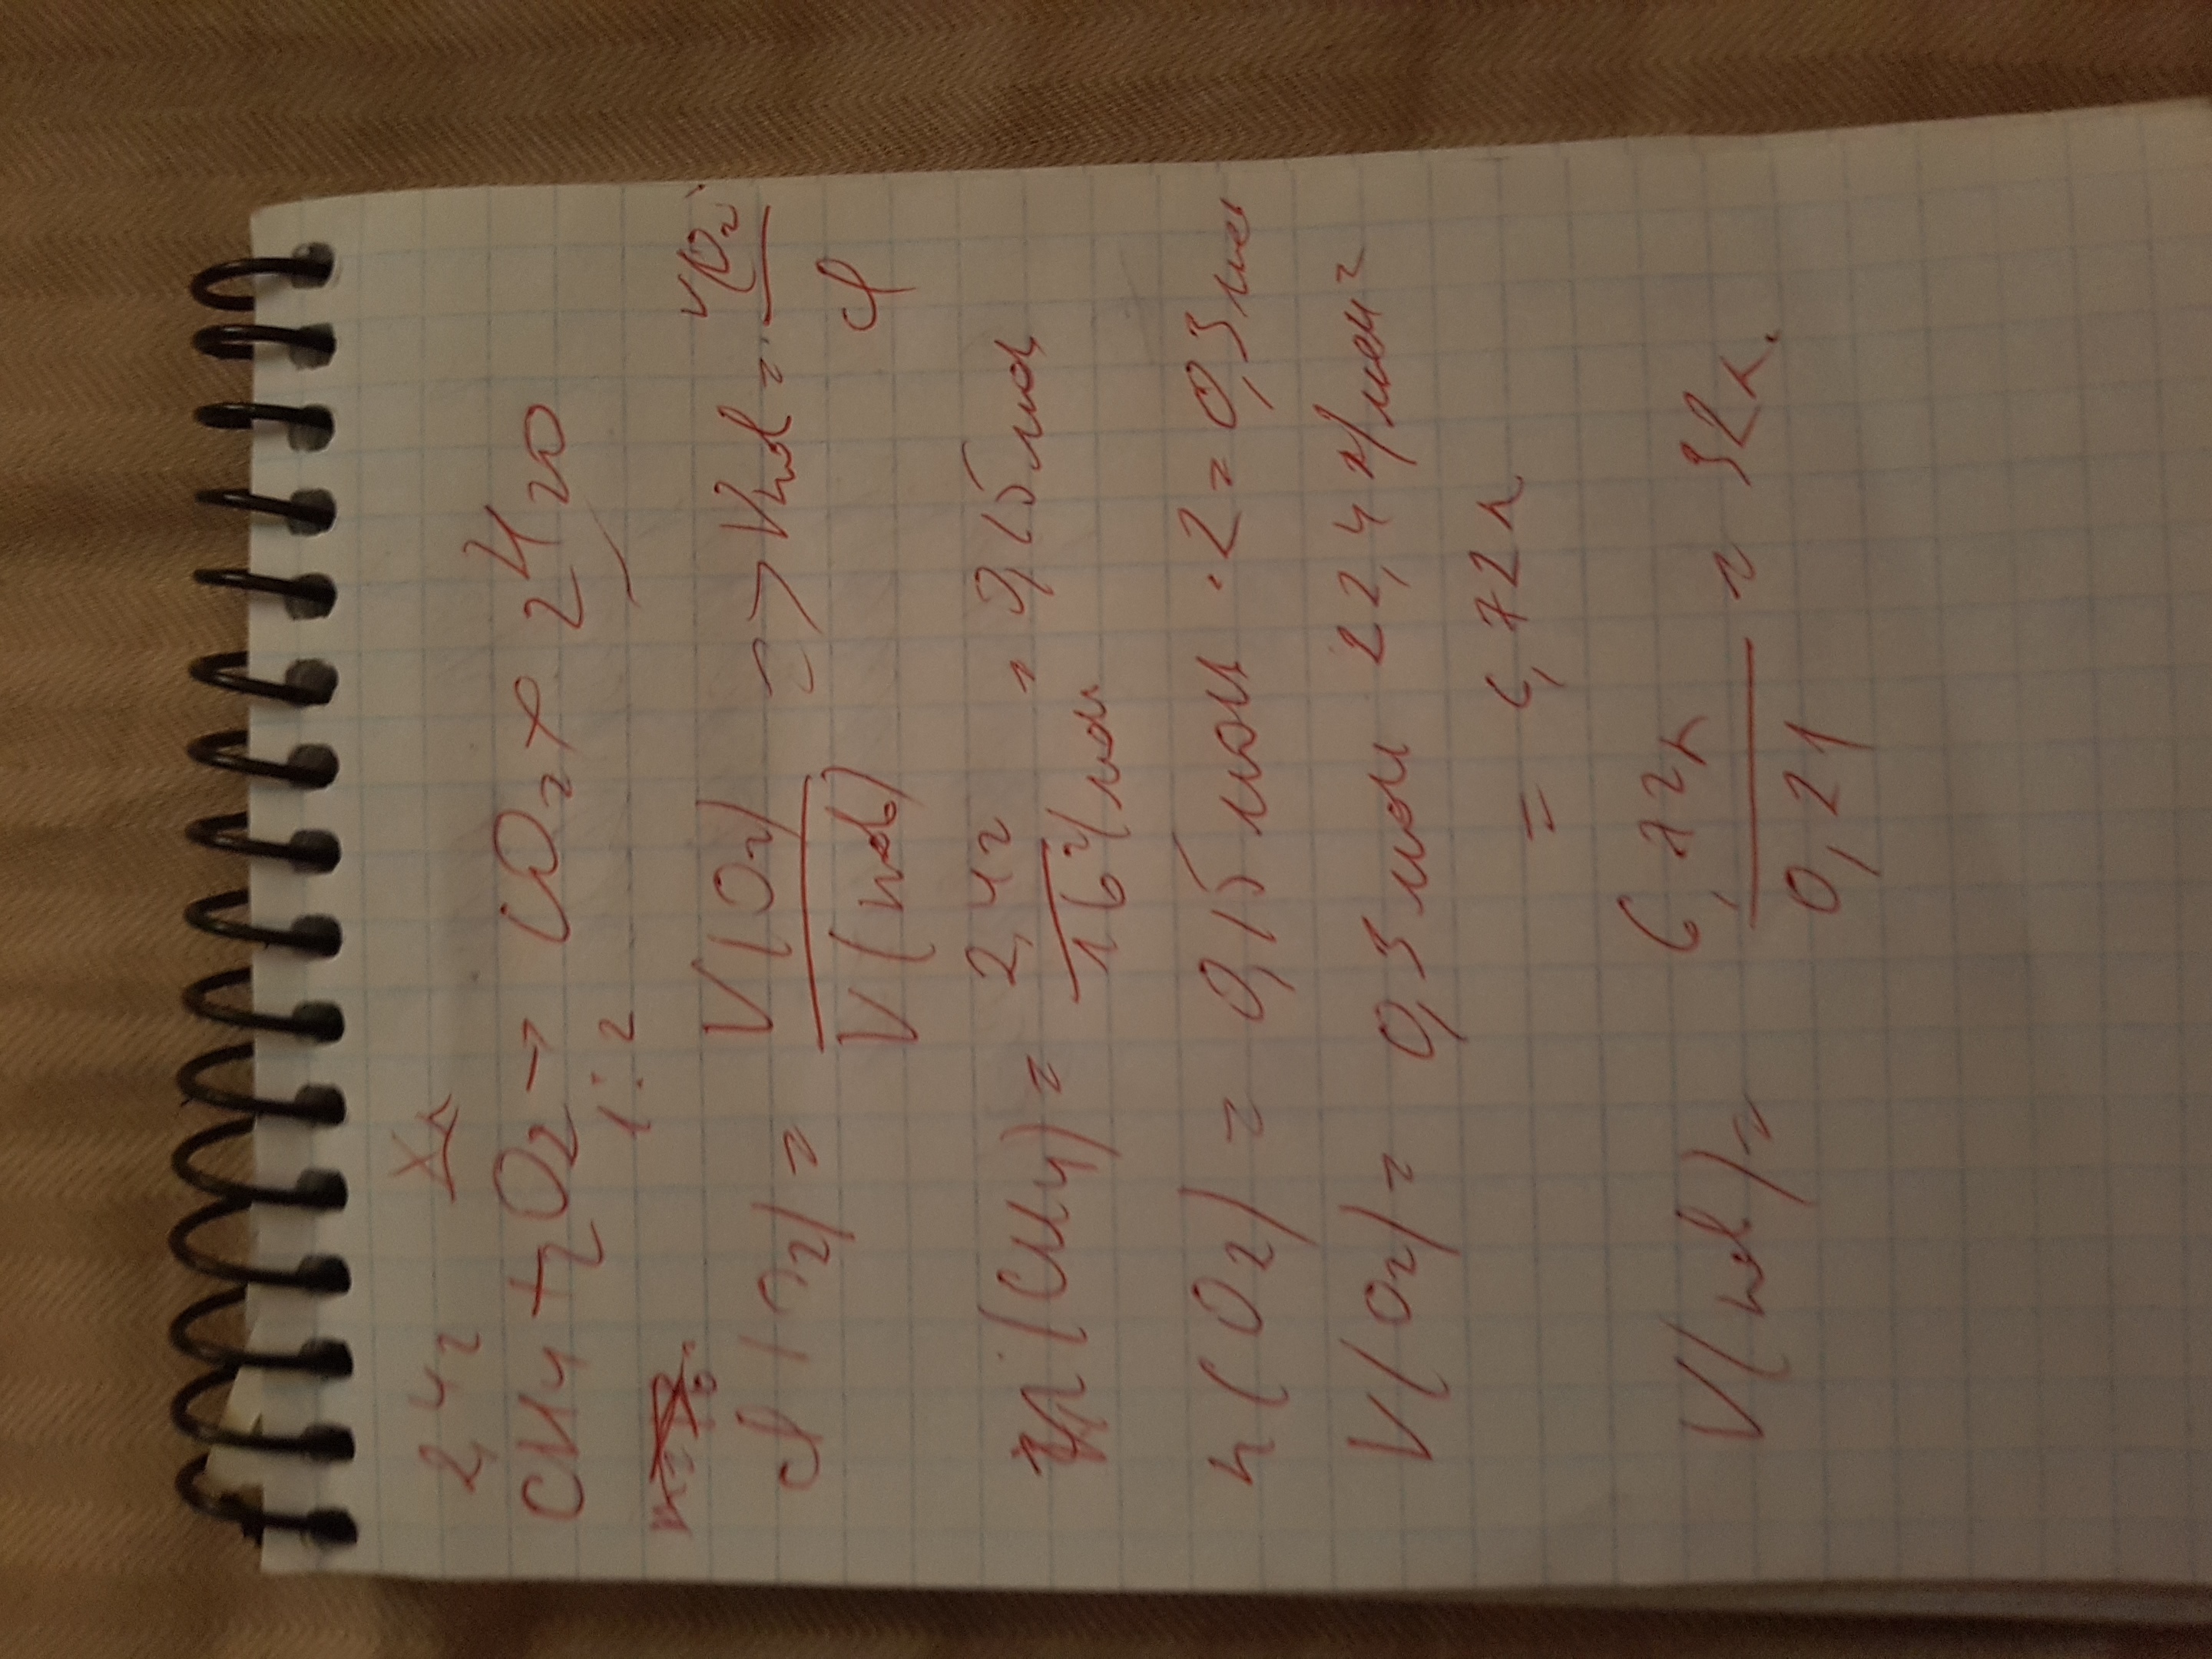 2,4г Xл
CH4 + 2O2 → CO2 + 2H2O
1:2
φ(O2) = V(O2)/V(возд) => Vвозд = V(O2)/φ
n(CH4) = 2,4г/16г/моль = 0,15 моль
n(O2) = 0,15 моль · 2 = 0,3 моль
V(O2) = 0,3 моль 22,4 л/моль =
= 6,72 л
V(возд) = 6,72л/0,21 = 32л.